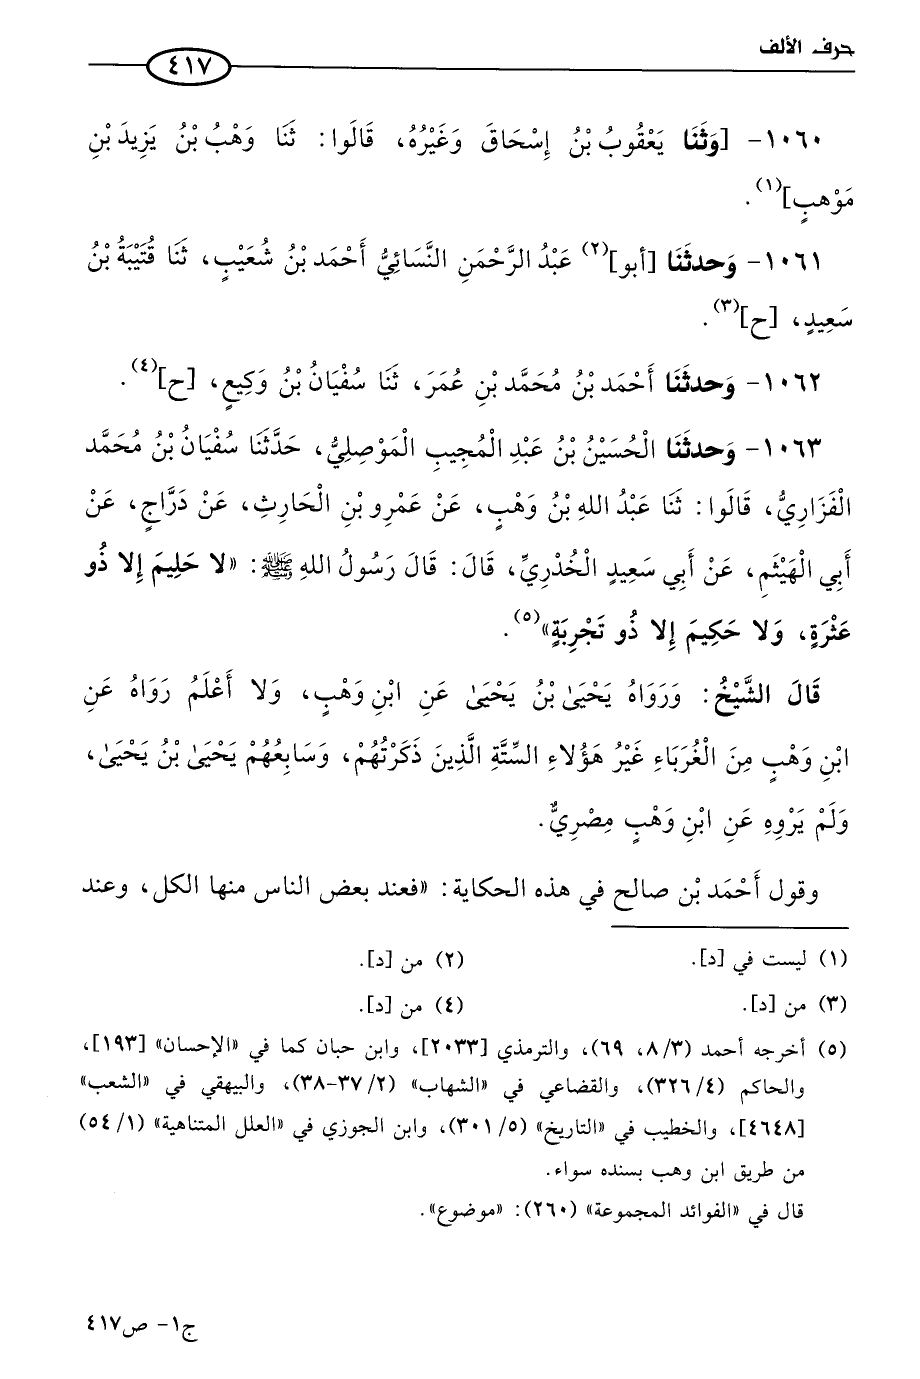 حرف الألف
٤١٧
١٠٦٠- [وَثَنَا يَعْقُوبُ بْنُ إِسْحَاقَ وَغَيْرُهُ، قَالُوا: ثَنَا وَهْبُ بْنُ يَزِيدَ بْنِ
مَوْهبٍ](١).
١٠٦١- وَحدثَنَا [أبو](٢) عَبْدُ الرَّحْمَنِ النَّسَائِيُّ أَحْمَد بْنُ شُعَيْبٍ، ثَنَا قُتَيْبَةُ بْنُ
سَعِيدٍ، [ح](٣).
١٠٦٢- وَحدثَنَا أَحْمَد بْنُ مُحَمَّد بْنِ عُمَرَ، ثَنَا سُفْيَانُ بْنُ وَكِيعٍ، [ح](٤).
١٠٦٣- وَحدثَنَا الْحُسَيْنُ بْنُ عَبْدِ الْمُجِيبِ الْمَوْصِلِيُّ، حَدَّثَنَا سُفْيَانُ بْنُ مُحَمَّد
الْفَزَارِيُّ، قَالُوا: ثَنَا عَبْدُ اللهِ بْنُ وَهْبٍ، عَنْ عَمْرِو بْنِ الْحَارِثِ، عَنْ دَرَّاجٍ، عَنْ
أَبِي الْهَيْثَمِ، عَنْ أَبِي سَعِيدٍ الْخُدْرِيِّ، قَالَ: قَالَ رَسُولُ اللهِ ﷺ: «لا حَلِيمَ إِلا ذُو
عَثْرَةٍ، وَلا حَكِيمَ إِلا ذُو تَجْرِبَةٍ»(٥).
قَالَ الشَّيْخُ: وَرَوَاهُ يَحْيَىٰ بْنُ يَحْيَىٰ عَنِ ابْنِ وَهْبٍ، وَلا أَعْلَمُ رَوَاهُ عَنِ
ابْنِ وَهْبٍ مِنَ الْغُرَبَاءِ غَيْرُ هَؤُلاءِ السِّتَّةِ الَّذِينَ ذَكَرْتُهُمْ، وَسَابِعُهُمْ يَحْيَىٰ بْنُ يَحْيَىٰ،
وَلَمْ يَرْوِهِ عَنِ ابْنِ وَهْبٍ مِصْرِيٌّ.
وقول أَحْمَد بْن صالح في هذه الحكاية: «فعند بعض الناس منها الكل، وعند
(١) ليست في [د]. (٢) من [د].
(٣) من [د]. (٤) من [د].
(٥) أخرجه أحمد (٨/٣، ٦٩)، والترمذي [٢٠٣٣]، وابن حبان كما في «الإحسان» [١٩٣]،
والحاكم (٣٢٦/٤)، والقضاعي في «الشهاب» (٣٧/٢-٣٨)، والبيهقي في «الشعب»
[٤٦٤٨]، والخطيب في «التاريخ» (٣٠١/٥)، وابن الجوزي في «العلل المتناهية» (٥٤/١)
من طريق ابن وهب بسنده سواء.
قال في «الفوائد المجموعة» (٢٦٠): «موضوع».
ج١- ص٤١٧